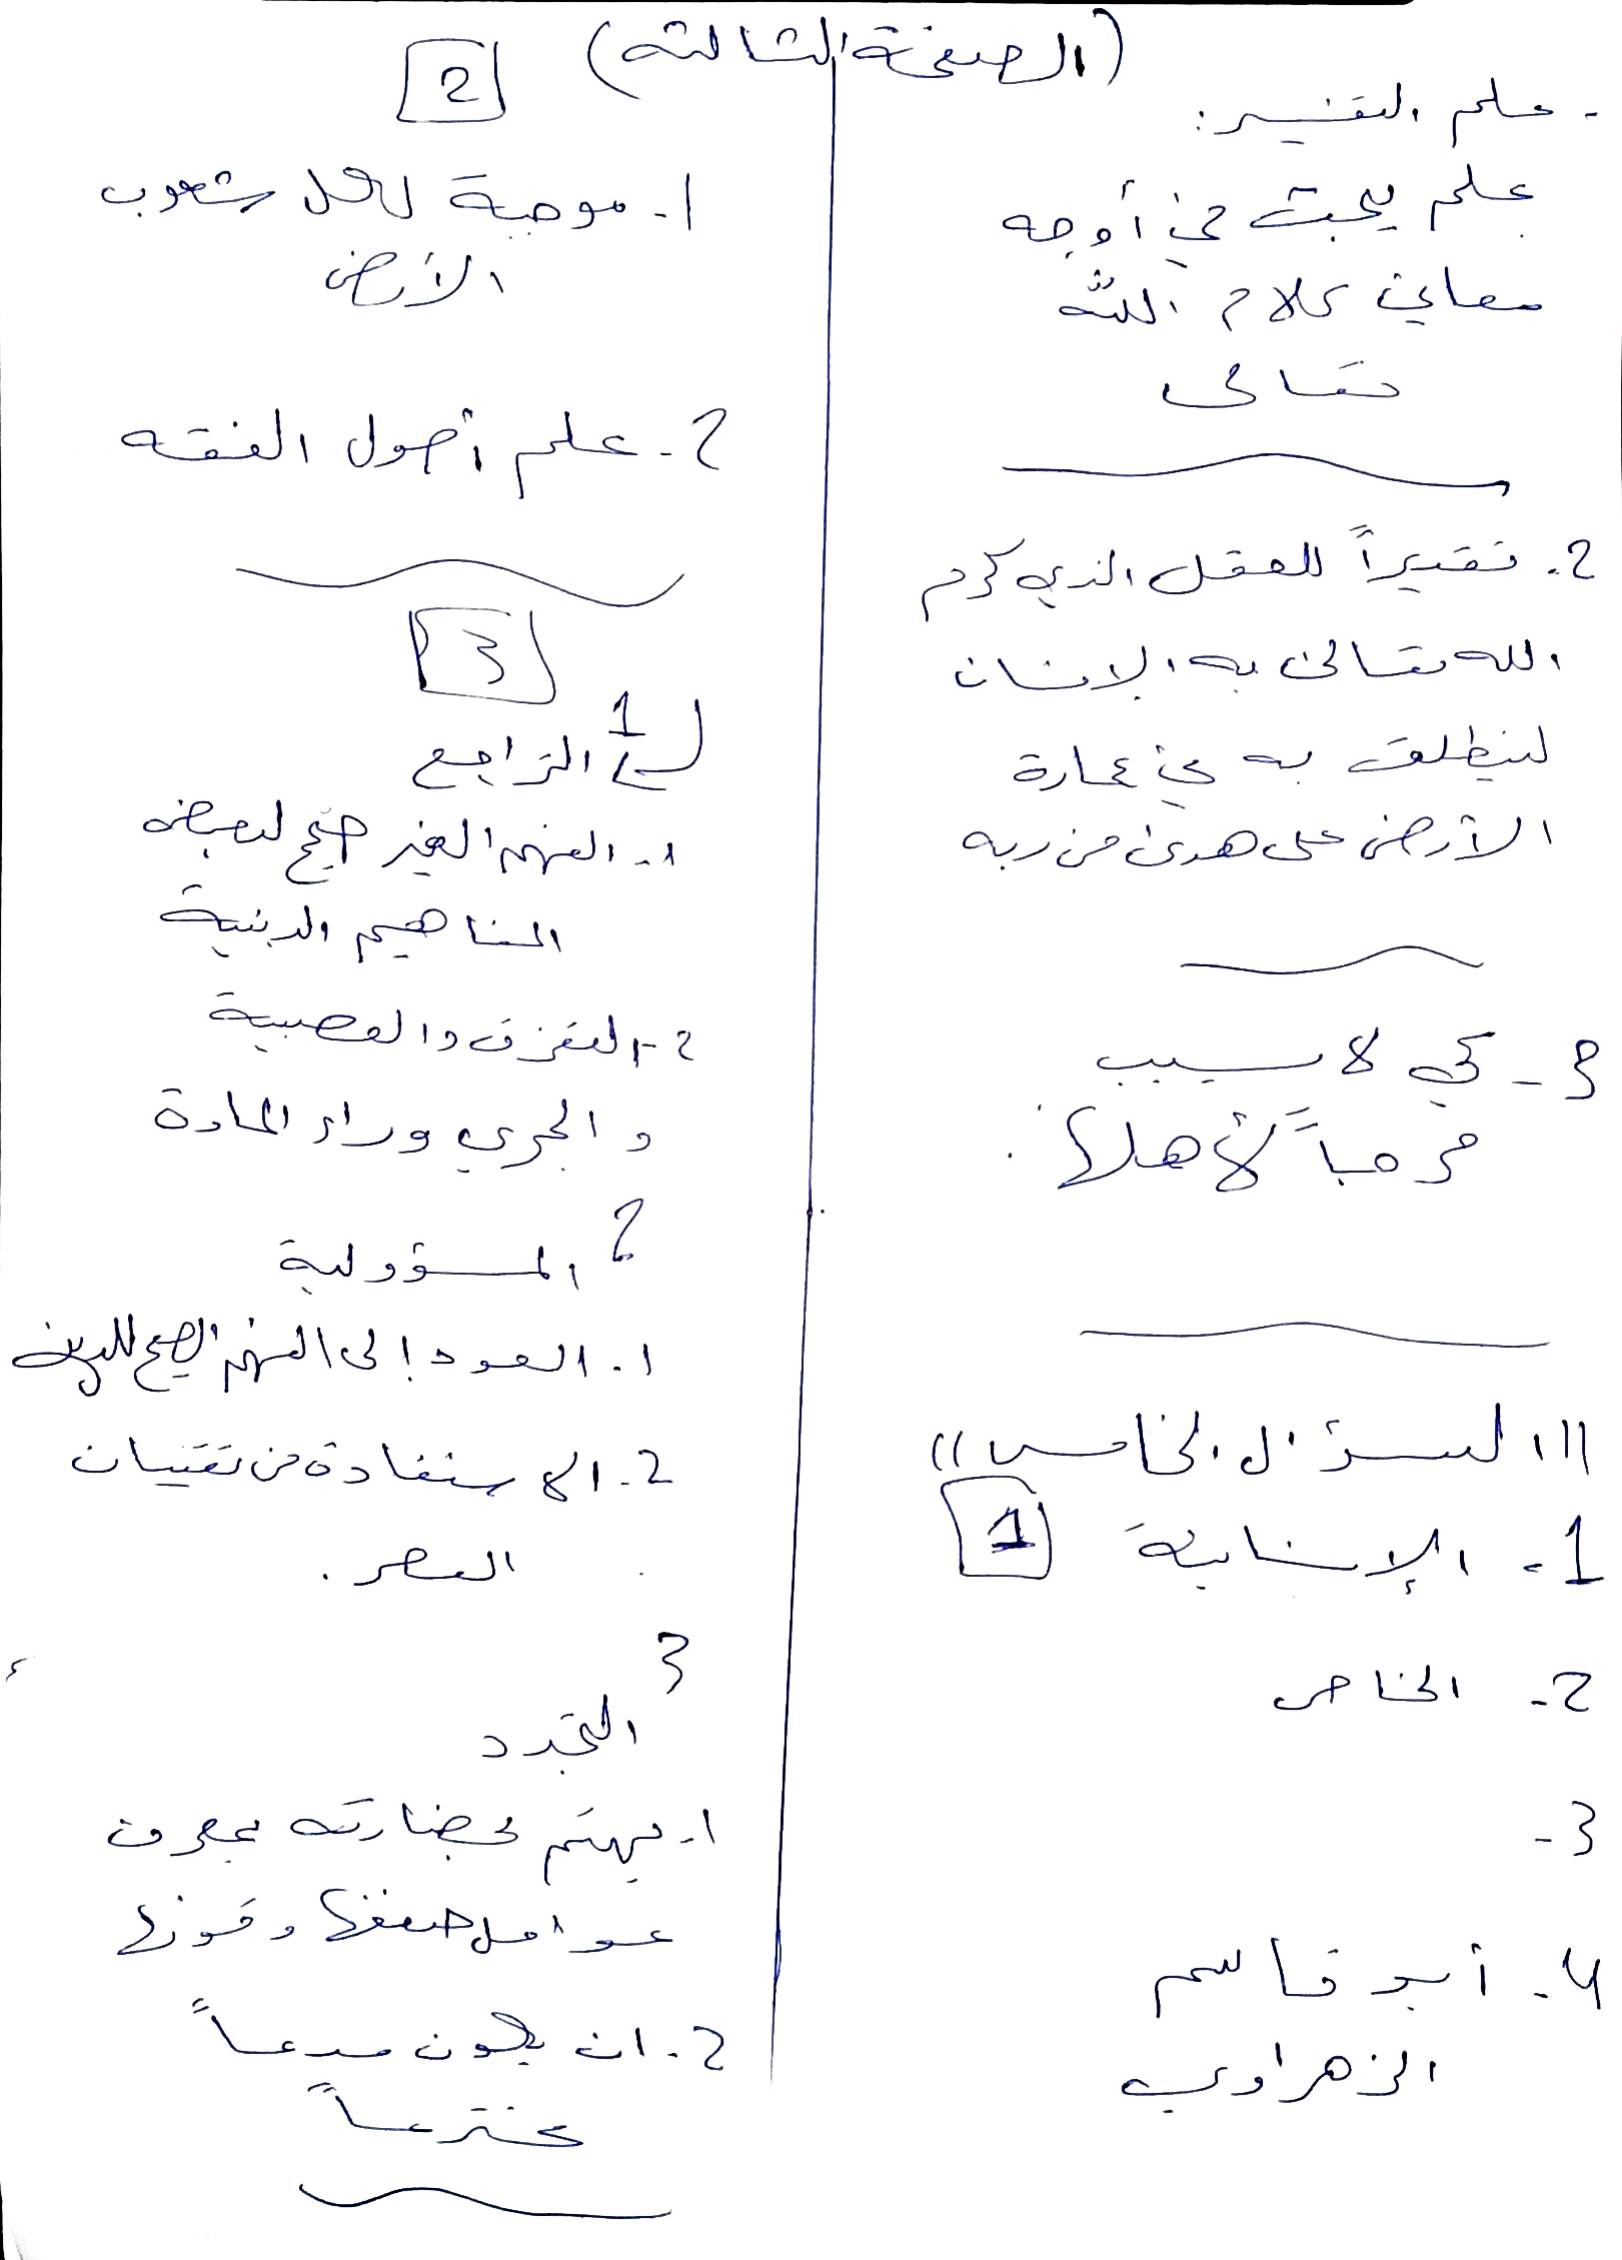 (الصفحة الثالثة)
- علم التفسير:
علم يبحث في أوجه
معاني كلام الله
تعالى
2. تقديراً للعقل الذي كرم
الله تعالى به الإنسان
لينطلق به في عمارة
الأرض على هدى من ربه
3- كي لا يسبب
حرجاً لأهلها.
((السؤال الخامس))
1- الإنسانية 1
2- الخاص
3-
4- أبو قاسم
الزهراوي
2
1- موجهة لكل شعوب
الأرض
2- علم أصول الفقه
3
1 التراجع
1- الفهم الغير صحيح لبعض
المفاهيم الدينية
2- التفرق والعصبية
والجري وراء المادة
2 المسؤولية
1. العودة إلى الفهم الصحيح للدين
2. الاستفادة من تقنيات
العصر.
3
التجدد
1- يهتم بحضارته يعرف
عوامل ضعفها وقوتها
2- ان يكون مبدعاً
مخترعاً